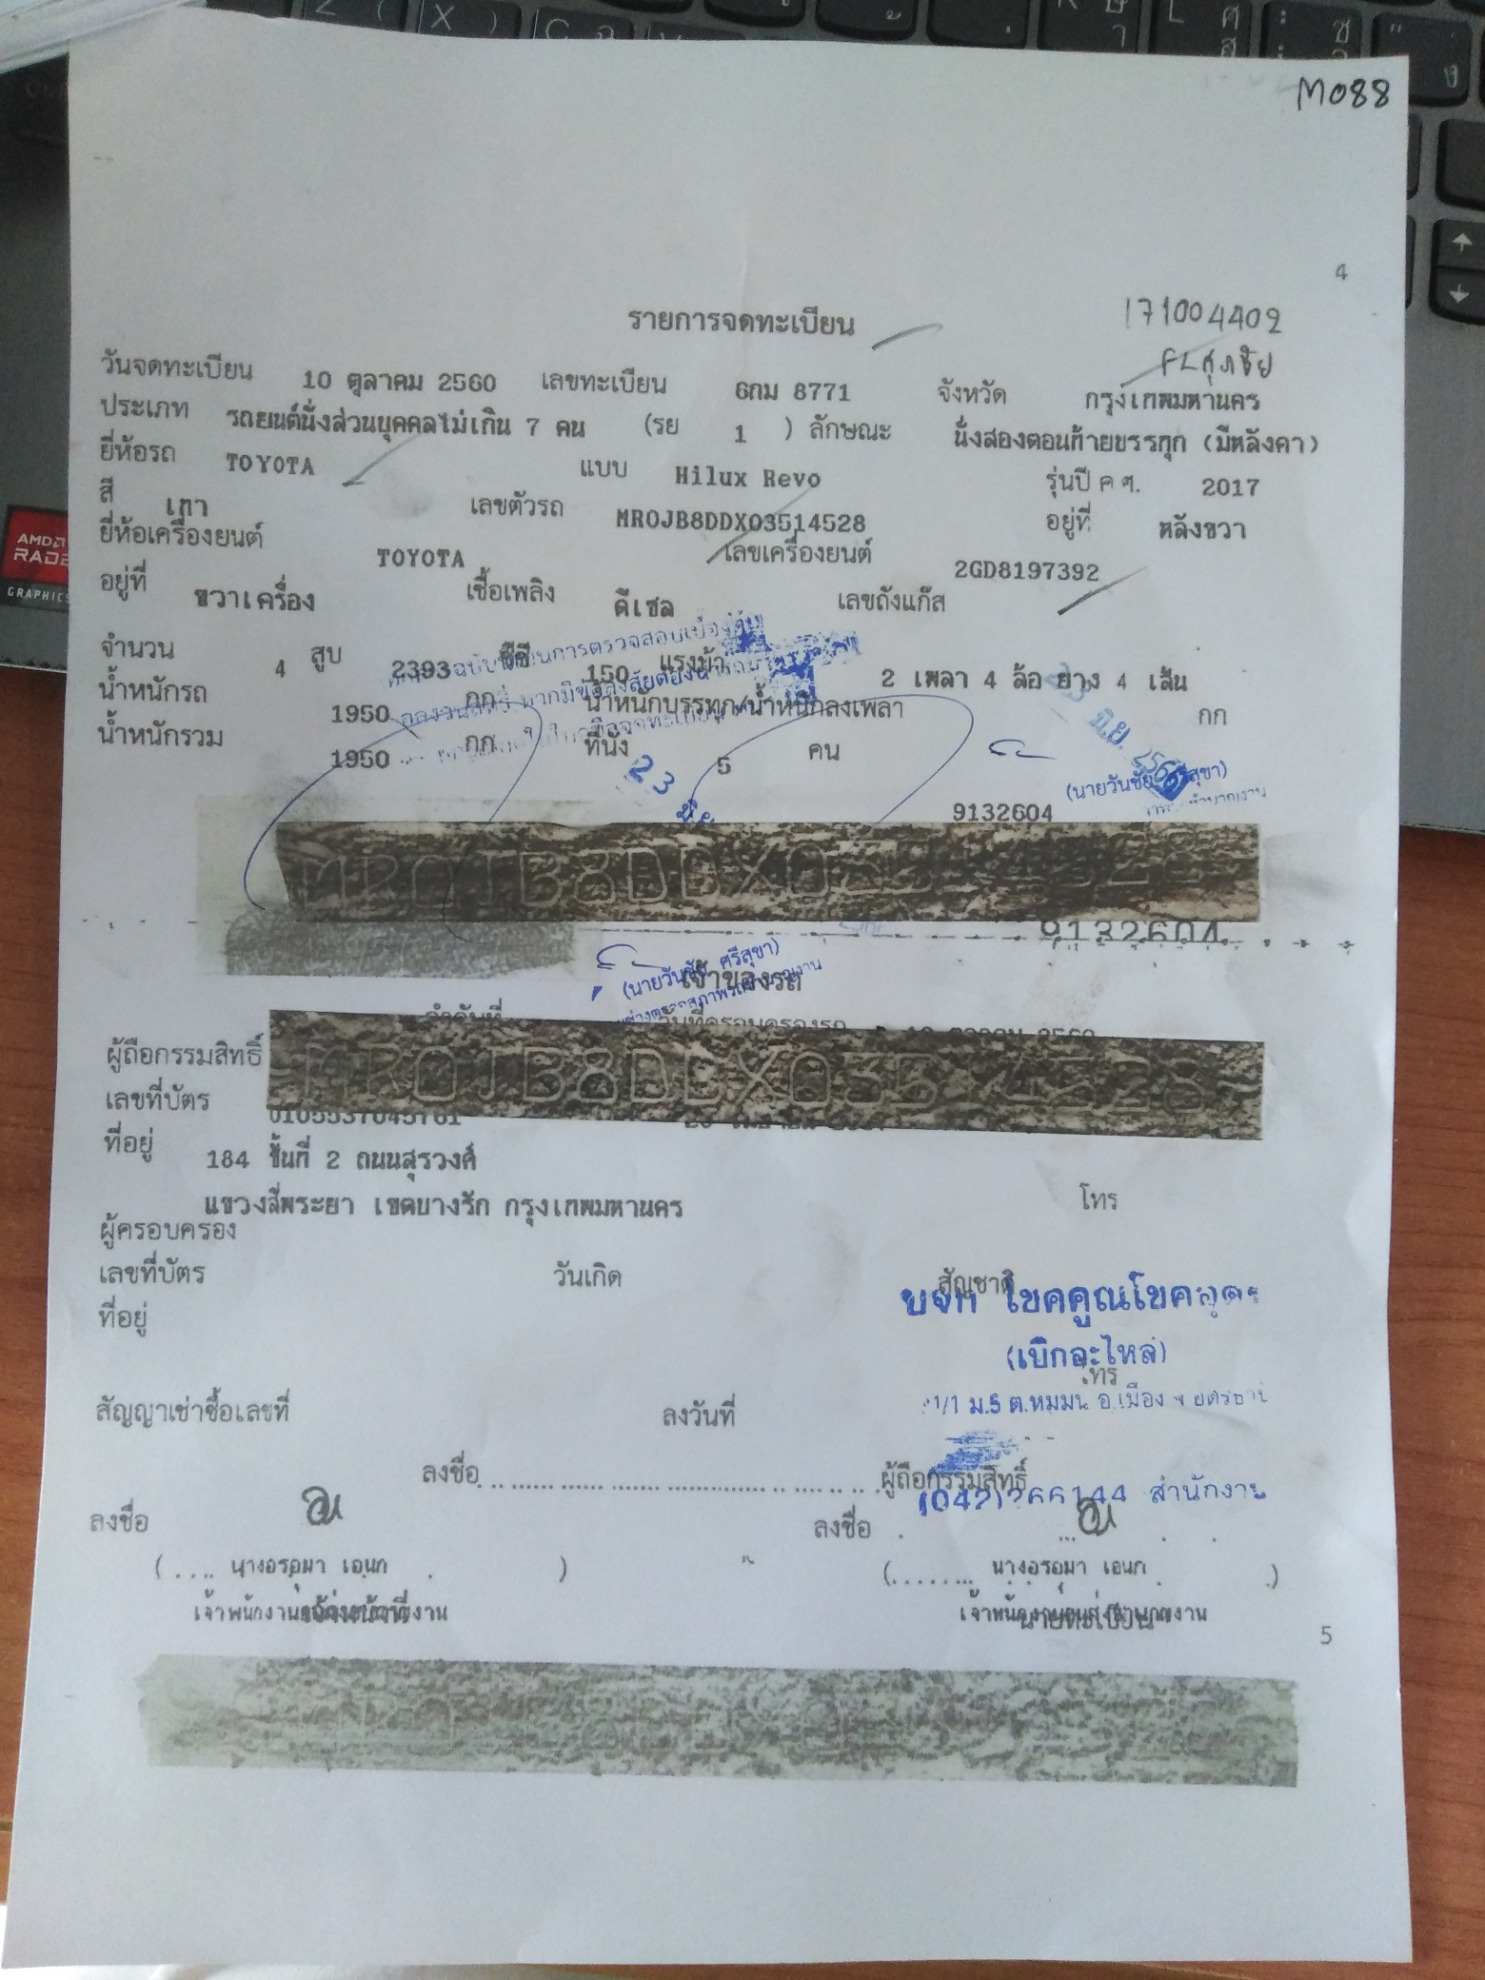 M088
4
รายการจดทะเบียน
171004402
วันจดทะเบียน 10 ตุลาคม 2560 เลขทะเบียน 6กม 8771 จังหวัด กรุงเทพมหานคร
ประเภท รถยนต์นั่งส่วนบุคคลไม่เกิน 7 คน (รย 1 ) ลักษณะ นั่งสองตอนท้ายบรรทุก (มีหลังคา)
ยี่ห้อรถ TOYOTA แบบ Hilux Revo รุ่นปี ค ศ. 2017
สี เทา เลขตัวรถ MR0JB8DDX03514528 อยู่ที่ หลังขวา
ยี่ห้อเครื่องยนต์ TOYOTA เลขเครื่องยนต์ 2GD8197392
อยู่ที่ ขวาเครื่อง เชื้อเพลิง ดีเซล เลขถังแก๊ส
จำนวน 4 สูบ 2393 ซีซี 150 แรงม้า 2 เพลา 4 ล้อ ยาง 4 เส้น
น้ำหนักรถ 1950 กก น้ำหนักบรรทุก/น้ำหนักลงเพลา กก
น้ำหนักรวม 1950 กก ที่นั่ง 5 คน
23 มิย
(นายวันชัย ศรีสุขา)
9132604
MR0JB8DDX03514528
9132604
(นายวันชัย ศรีสุขา)
เจ้าของรถ
ผู้ถือกรรมสิทธิ์
MR0JB8DDX03514528
เลขที่บัตร
ที่อยู่ 184 ชั้นที่ 2 ถนนสุรวงศ์
แขวงสี่พระยา เขตบางรัก กรุงเทพมหานคร โทร
ผู้ครอบครอง
เลขที่บัตร วันเกิด สัญชาติ
ที่อยู่
(เบิกอะไหล่)
โทร
สัญญาเช่าซื้อเลขที่ ลงวันที่
ลงชื่อ ผู้ถือกรรมสิทธิ์
(042)266144 สำนักงาน
ลงชื่อ ลงชื่อ
(.... นางอรอุมา เอนก ) (....... นางอรอุมา เอนก )
5